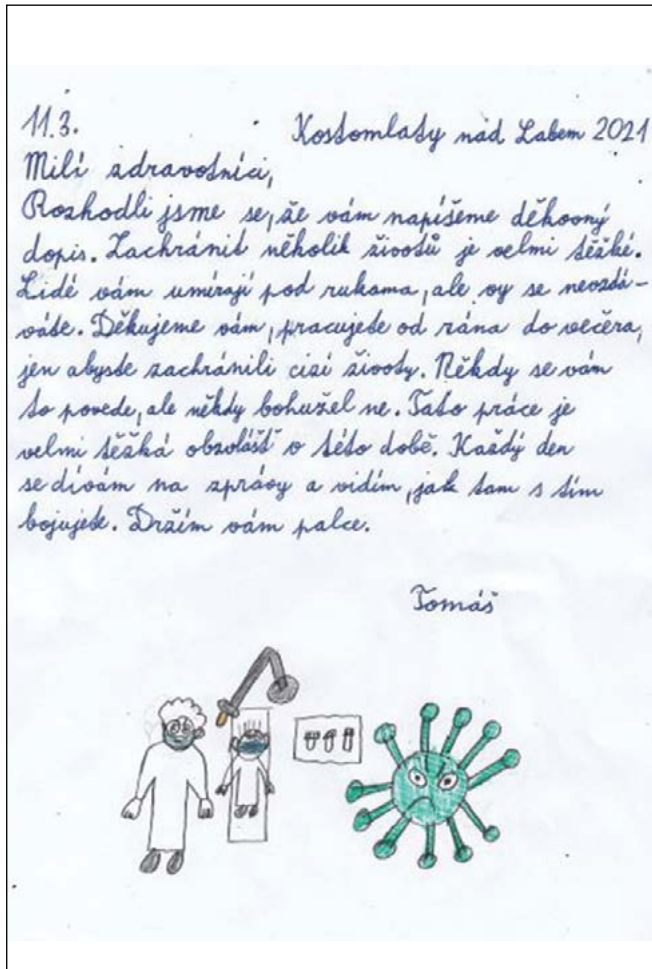 11.3. Kostomlaty nad Labem 2021
Milí zdravotníci,
Rozhodli jsme se, že vám napíšeme děkovný
dopis. Zachránit několik životů je velmi těžké.
Lidé vám umírají pod rukama, ale vy se nevzdá-
váte. Děkujeme vám, pracujete od rána do večera,
jen abyste zachránili cizí životy. Někdy se vám
to povede, ale někdy bohužel ne. Tato práce je
velmi těžká obzvlášť v této době. Každý den
se dívám na zprávy a vidím, jak tam s tím
bojujete. Držím vám palce.
Tomáš